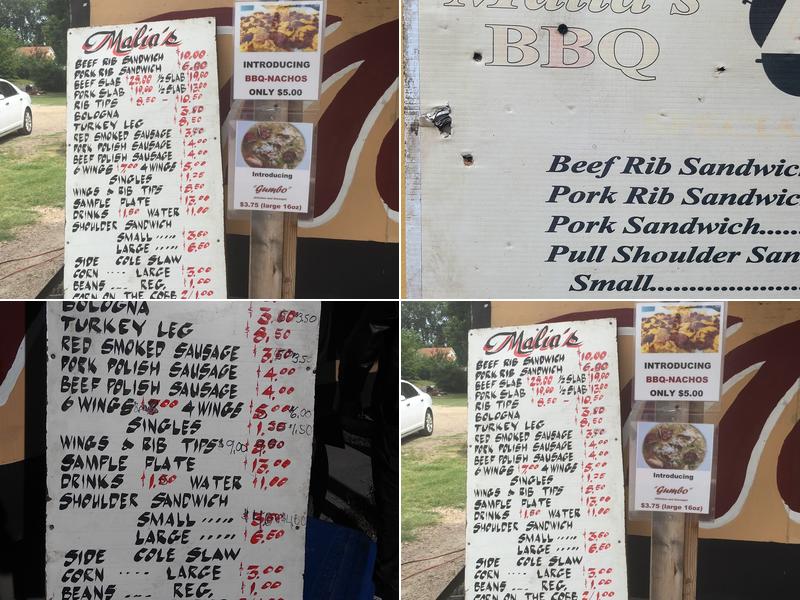 Malia's
BEEF RIB SANDWICH $10.00
PORK RIB SANDWICH 6.00
BEEF SLAB $28.00 ½ SLAB
PORK SLAB ½ SLAB
RIB TIPS $8.50 - 10.50
BOLOGNA 3.50
TURKEY LEG 8.50
RED SMOKED SAUSAGE 3.50
PORK POLISH SAUSAGE $4.00
BEEF POLISH SAUSAGE $4.00
6 WINGS 7.00 4 WINGS 5.00
SINGLES 1.25
WINGS & RIB TIPS 8.50
SAMPLE PLATE 13.00
DRINKS $1.50 WATER $1.00
SHOULDER SANDWICH
SMALL ..... 3.50
LARGE ..... 6.50
SIDE COLE SLAW
CORN .... LARGE 3.00
BEANS .... REG. 1.00
CORN ON THE COBB 2/1.00
INTRODUCING
BBQ-NACHOS
ONLY $5.00
Introducing
"Gumbo"
$3.75 (large 16oz)
Malia's
BBQ
Beef Rib Sandwich
Pork Rib Sandwic
Pork Sandwich.....
Pull Shoulder San
Small
BOLOGNA 3.50 3.50
TURKEY LEG 8.50
RED SMOKED SAUSAGE 3.50
PORK POLISH SAUSAGE $4.00
BEEF POLISH SAUSAGE $4.00
6 WINGS 4 WINGS 5.00 6.00
SINGLES 1.25 1.50
WINGS & RIB TIPS $9.00
SAMPLE PLATE 13.00
DRINKS $1.50 WATER $1.00
SHOULDER SANDWICH
SMALL .....
LARGE ..... 6.50
SIDE COLE SLAW
CORN .... LARGE $3.00
BEANS .... REG. $1.00
Malia's
BEEF RIB SANDWICH $10.00
PORK RIB SANDWICH 6.00
BEEF SLAB $28.00 ½ SLAB
PORK SLAB ½ SLAB
RIB TIPS $8.50 - 10.50
BOLOGNA 3.50
TURKEY LEG 8.50
RED SMOKED SAUSAGE 3.50
PORK POLISH SAUSAGE $4.00
BEEF POLISH SAUSAGE $4.00
6 WINGS 7.00 4 WINGS 5.00
SINGLES 1.25
WINGS & RIB TIPS 8.50
SAMPLE PLATE 13.00
DRINKS $1.50 WATER $1.00
SHOULDER SANDWICH
SMALL ..... 3.50
LARGE ..... 6.50
SIDE COLE SLAW
CORN .... LARGE 3.00
BEANS .... REG. 1.00
CORN ON THE COBB 2/1.00
INTRODUCING
BBQ-NACHOS
ONLY $5.00
Introducing
"Gumbo"
$3.75 (large 16oz)